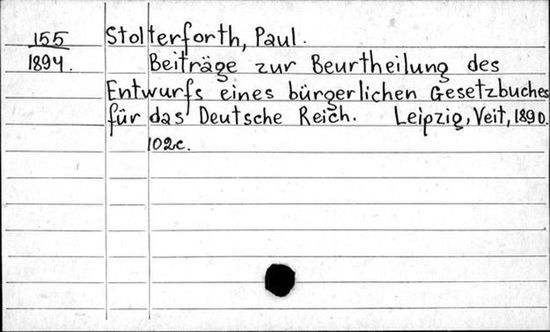 155
1894.
Stolterforth, Paul.
Beiträge zur Beurtheilung des
Entwurfs eines bürgerlichen Gesetzbuches
für das Deutsche Reich. Leipzig, Veit, 1890.
102c.